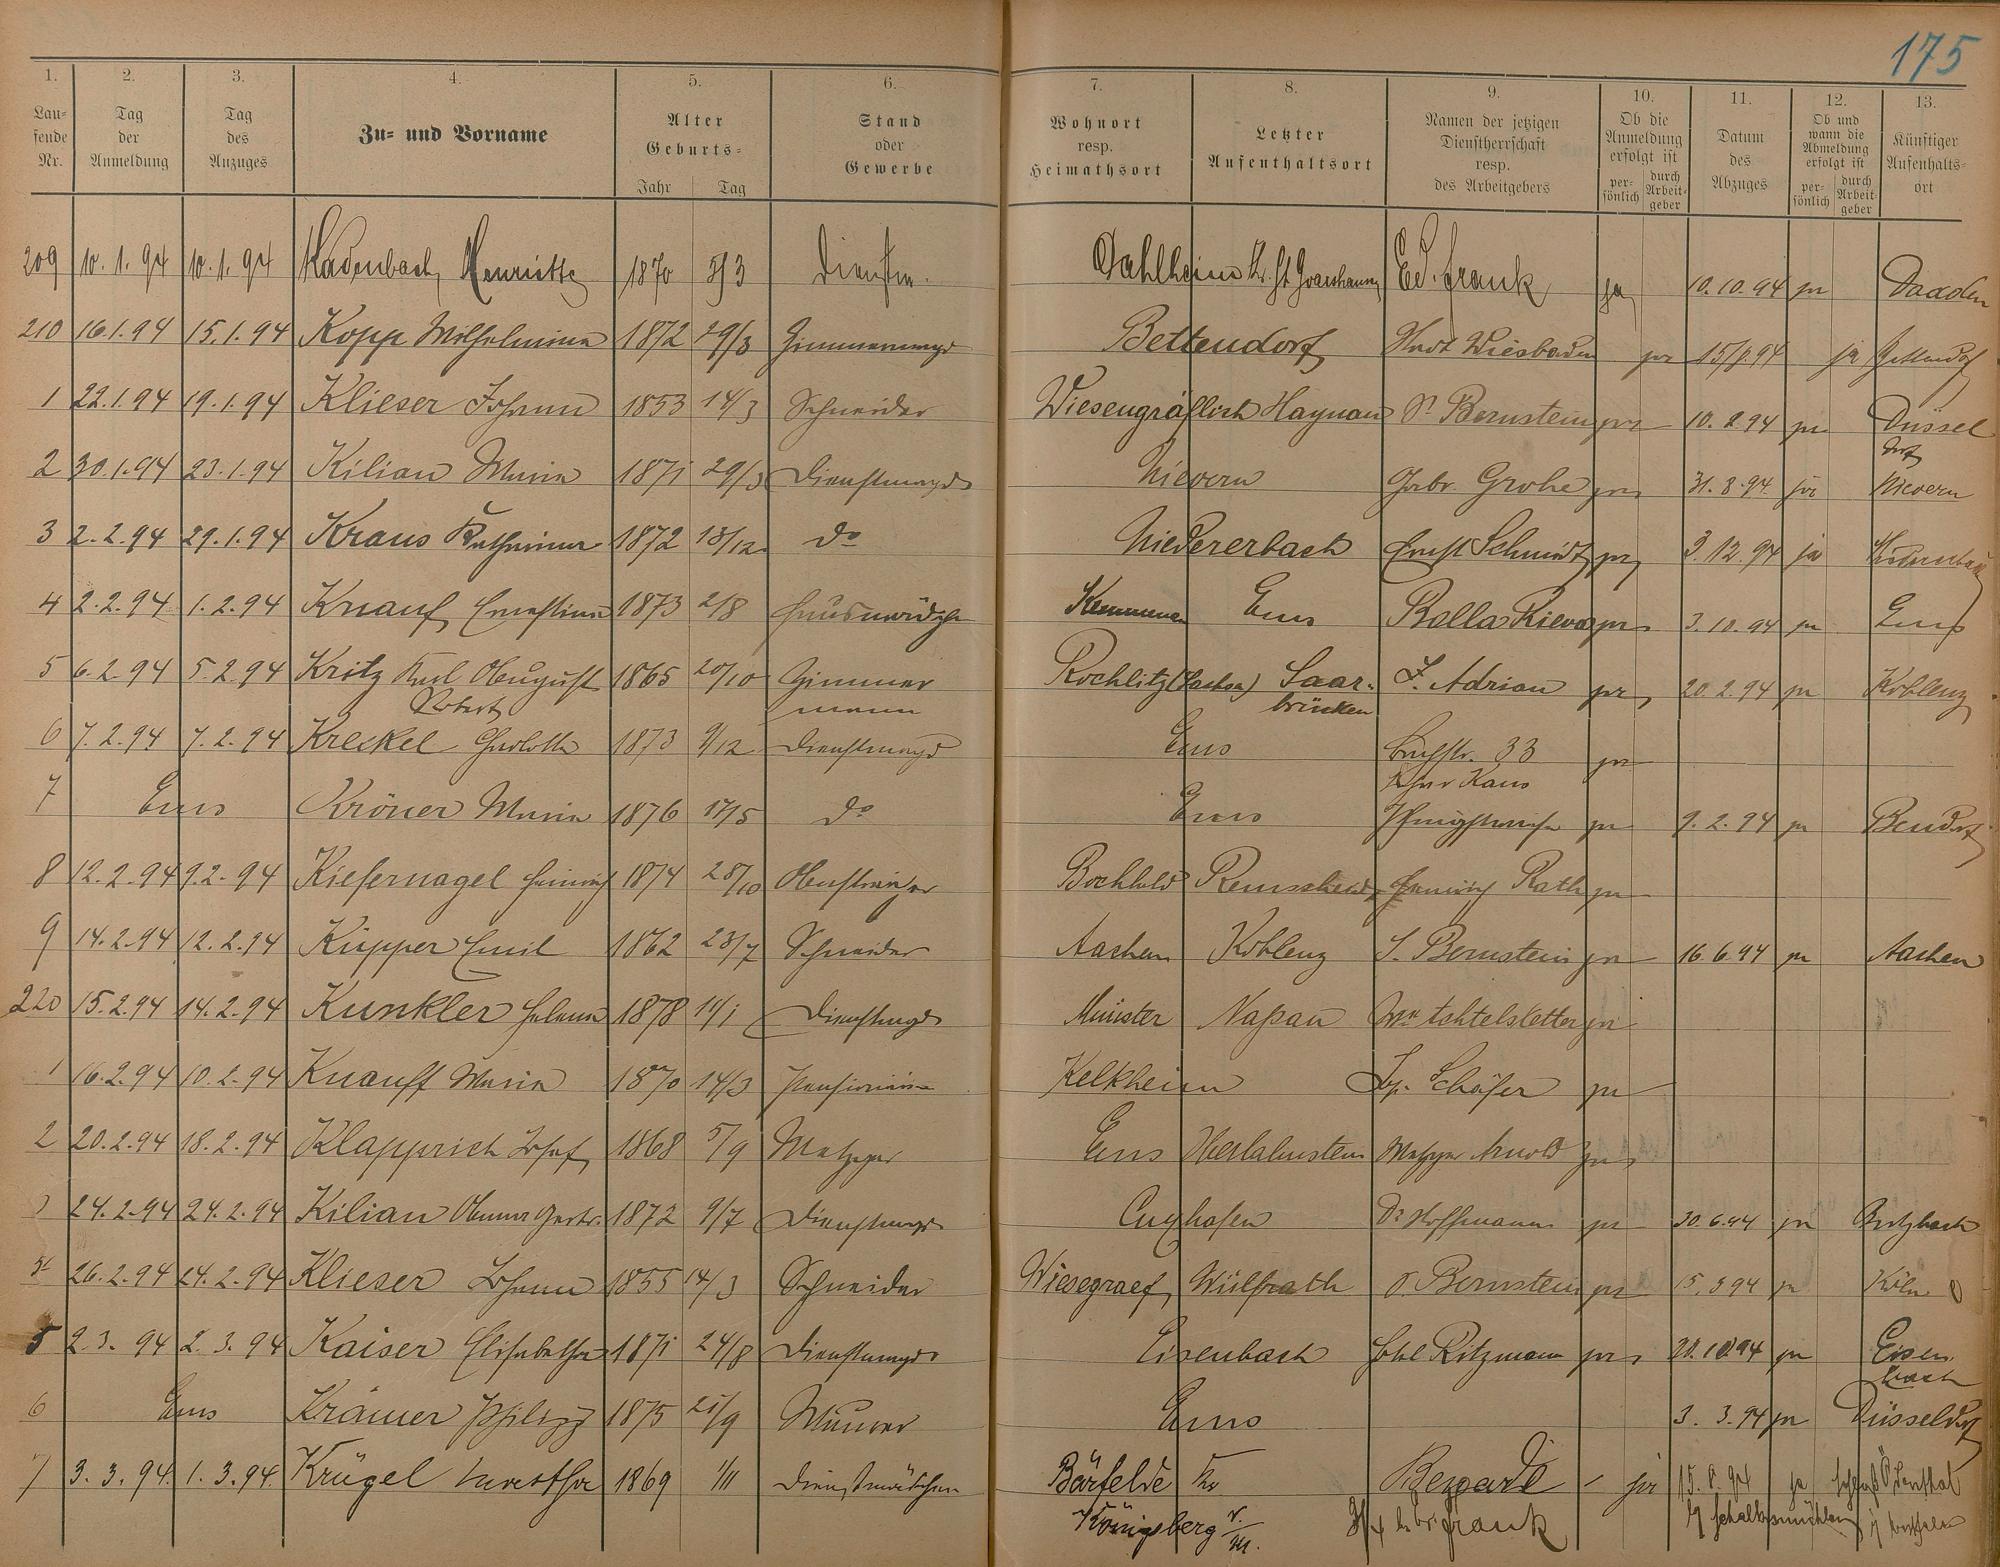 175
1. 2. 3. 4. 5. 6. 7. 8. 9. 10. 11. 12. 13.
Laufende Nr. Tag der Anmeldung Tag des Anzuges Zu- und Vorname Alter Geburts- Jahr Tag Stand oder Gewerbe Wohnort resp. Heimathsort Letzter Aufenthaltsort Namen der jetzigen Dienstherrschaft resp. des Arbeitgebers Ob die Anmeldung erfolgt ist persönlich durch Arbeitgeber Datum des Abzuges Ob und wann die Abmeldung erfolgt ist persönlich durch Arbeitgeber Künftiger Aufenthaltsort
209 10.1.94 10.1.94 Kadenbach, Henriette 1870 5/3 Dienstm. Dahlheim Kr. St Goarshausen Ed. Frank ja 10.10.94 ja Daaden
210 16.1.94 15.1.94 Kopp Wilhelmina 1872 29/3 Zimmermagd Bettendorf Stadt Wiesbaden ja 94 ja
1 22.1.94 19.1.94 Klieser Johann 1853 14/3 Schneider Wiesengräflich Haynau S. Bernstein ja 10.2.94 ja Düssel
dorf
2 30.1.94 23.1.94 Kilian Maria 1871 29/3 Dienstmagd Nievern Gebr. Grohe ja 31.8.94 ja Nievern
3 2.2.94 29.1.94 Kraus Katharina 1872 13/12 do Niedererbach Ernst Schmidt ja 3.12.94 ja
4 2.2.94 1.2.94 Knauf, Ernestine 1873 2/8 Hausmädchen Kemmenau Ems ja 3.10.94 ja Ems
5 6.2.94 5.2.94 Kritz Karl August 1865 20/10 Zimmer Rochlitz (Sachsen) Saar- F. Adrian ja 20.2.94 ja Koblenz
Robert mann brücken
6 7.2.94 7.2.94 Kreckel Charlotte 1873 9/12 Dienstmagd Ems 33 ja
7 Ems Kröner Maria 1876 17/5 do Ems ja 9.2.94 ja Bendorf
8 12.2.94 9.2.94 Kiefernagel Heinrich 1874 28/10 Anstreicher Bochhold Remscheid Heinrich Rath ja
9 14.2.94 12.2.94 Küpper Emil 1862 23/7 Schneider Aachen Koblenz S. Bernstein ja 16.6.94 ja Aachen
220 15.2.94 14.2.94 Kunkler Helena 1878 11/1 Dienstmagd Münster Naßau Achtelstetter ja
1 16.2.94 10.2.94 Knauff Maria 1870 14/3 Kelkheim Jos. Schäfer ja
2 20.2.94 18.2.94 Klapprich Josef 1868 5/9 Metzger Ems Oberlahnstein Metzger Arnold ja
3 24.2.94 24.2.94 Kilian Anna Gertr. 1872 9/7 Dienstmagd Cuxhafen Dr Hoffmann ja 30.6.94 ja
4 26.2.94 24.2.94 Klieser Johann 1855 14/3 Schneider Wiesegraef Wülfrath S. Bernstein ja 15.3.94 ja Köln
5 2.3.94 2.3.94 Kaiser Elisabetha 1871 24/8 Dienstmagd Eisenbach Hotel Ritzmann ja 20.10.94 ja Eisen
bach
6 Ems Krämer Philipp 1875 25/9 Maurer Ems 3.3.94 ja Düsseldorf
7 3.3.94. 1.3.94. Krügel 1869 1/11 Dienstmädchen Bärfelde Kr ja 94 ja
Königsberg N. M. Frank Schalksmühlen